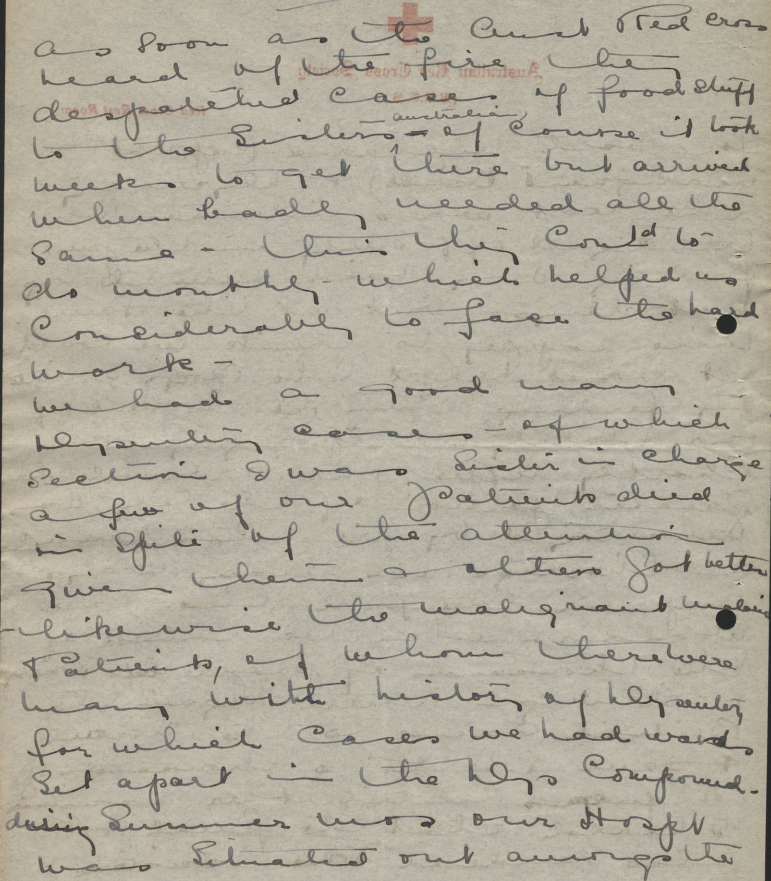 as soon as the Aust Red Cross
heard of the fire they
despatched cases of foodstuff
to the Sisters - of course it took
australian
weeks to get there but arrived
when badly needed all the
same - this they Could to
do monthly - which helped us
Considerably to face the hard
work -
we had a good many
Dysentery cases - of which
Section I was Sister in Charge
a few of our Patients died
in Spite of the attention
given them & others got better
- likewise the malignant malaria
Patients, of whom there were
many with history of Dysentery
for which Cases we had wards
Set apart in the Dys Compound.
during Summer mos our Hospt
was Situated out amongst the
Australian Red Cross Society